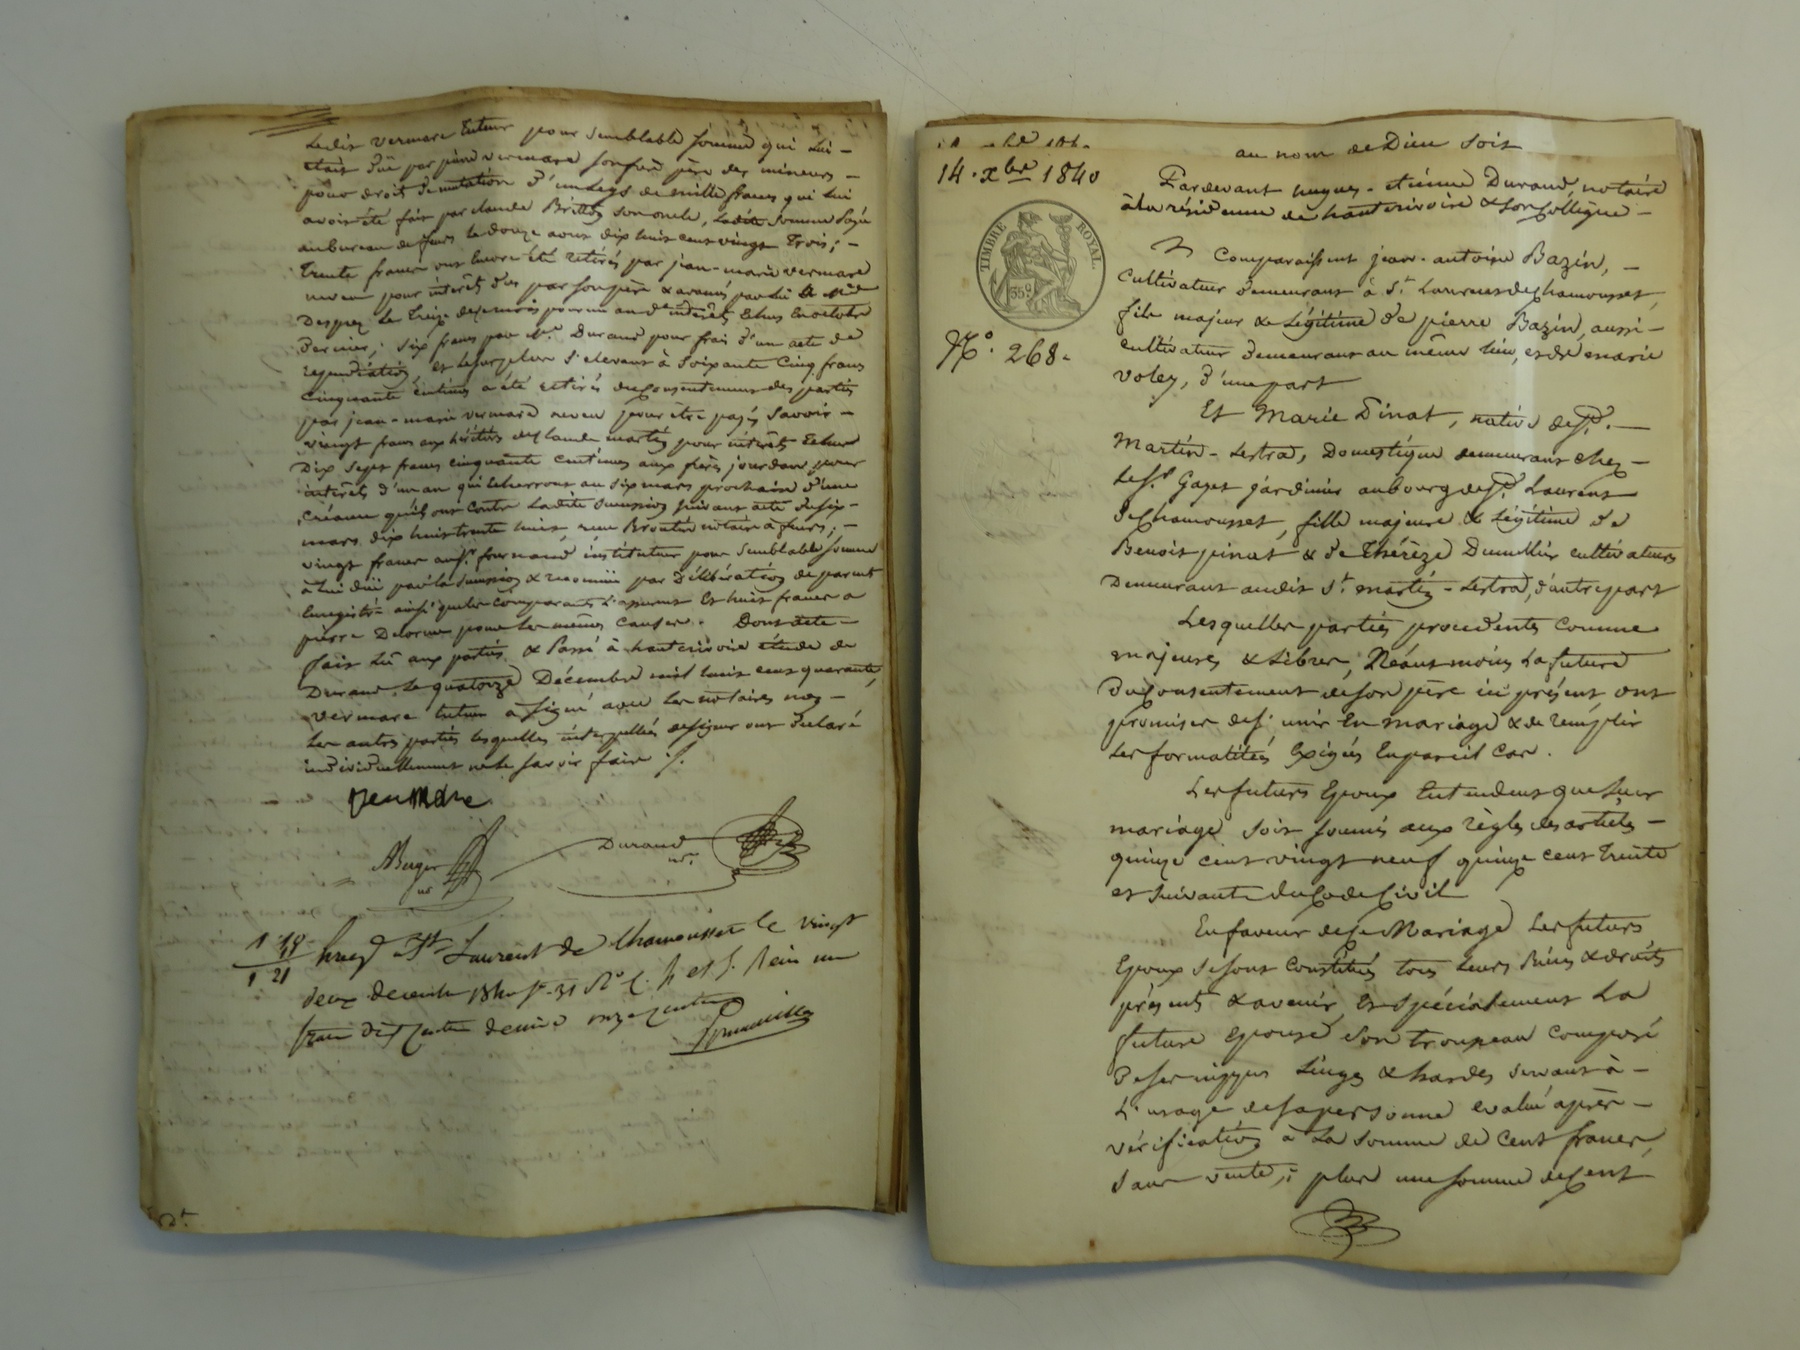 Ledit vermare Tuteur pour semblable somme qui lui -
était düe par pierre vermare son frère père des mineurs -
pour droit de mutation d'un legs de mille francs qui lui
avoit été fait par claude Britton son oncle, Ladite somme payée
au bureau de feurs le douze aout dix huit cent vingt Trois; -
Trente francs ont encore été retirés par jean-marie vermare
neveu pour intérêt dus par son père & avancés par lui à Md
Desprez le treize
dernier; six francs par Me. Durand pour frais d'un acte de
répudiation, et le surplus s'élevant à soixante cinq francs
cinquante centimes a été retirés du consentement des parties
par jean-marie vermare neveu pour être payés savoir -
vingt francs aux héritiers de claude martin pour intérêts Echus
Dix sept francs cinquante centimes aux frères jourdan pour
intérêts d'un an qui écherront au six mars prochain d'une
créance qu'ils ont contre Ladite succession suivant acte du six -
mars dix huit trente huit reçu Broutin notaire à feurs; -
vingt francs au sr. fournand instituteur pour semblable somme
à lui düe par la succession & reconnüe par Délibération de parents
Enregistré ainsi que les comparants l'assurent Et huit francs a
pierre Delorme pour les mêmes causes. Dont acte -
fait lû aux parties & Passé à hauterivoire étude de
Durand, le quatorze Décembre mil huit cent quarante,
vermare tuteur a signé avec les notaires non -
les autres parties lesquelles interpellées de signer ont déclaré
individuellement ne le savoir faire /.
Vermare
ABuger nre
Durand nre.
1 10
1 21
Enregé à St Laurent de Chamousset le vingt
deux décembre 1840 fo. 31 Ro C. 4 et 5. Reçu un
franc dix centimes décime onze centimes
14. xbre 1840
TIMBRE ROYAL
35 c
No. 268.
au nom de Dieu soit
Pardevant hugues-etienne Durand, notaire
à la résidence de hauterivoire & son collègue -
Comparaissent jean-antoine Bazin, -
cultivateur demeurant à St. Laurent de chamousset,
fils majeur & Légitime de pierre Bazin, aussi -
cultivateur demeurant au même lieu, et de marie
voley, d'une part
Et Marie Pinat, native de St. -
Martin-Lestra, Domestique demeurant chez -
le Sr. Gayet jardinier au bourg de St. Laurent
de chamousset, fille majeure & Légitime de
Benoit pinat & de Thérèze Dumellier cultivateurs
Demeurant audit St. martin-Lestra, d'autre part
Lesquelles parties procédents comme
majeures & Libres, Néantmoins La future
du consentement de son père ici présent, ont
promises de s'unir En mariage & de remplir
les formalitées Exigées En pareil cas.
Les futurs Epoux Entendent que leur
mariage soit soumis aux règles des articles -
quinze cent vingt neuf quinze cent trente
et suivants du Code Civil
En faveur de ce Mariage les futurs
Epoux se sont Constitués tous leurs biens & droits
présents & avenir, Et spécialement La
future epouse son trousseau composé
de ses nippes Linges & hardes servant à -
L'usage de sa personne evalué après -
vérification à la somme de cent francs,
sans vente; plus une somme de cent